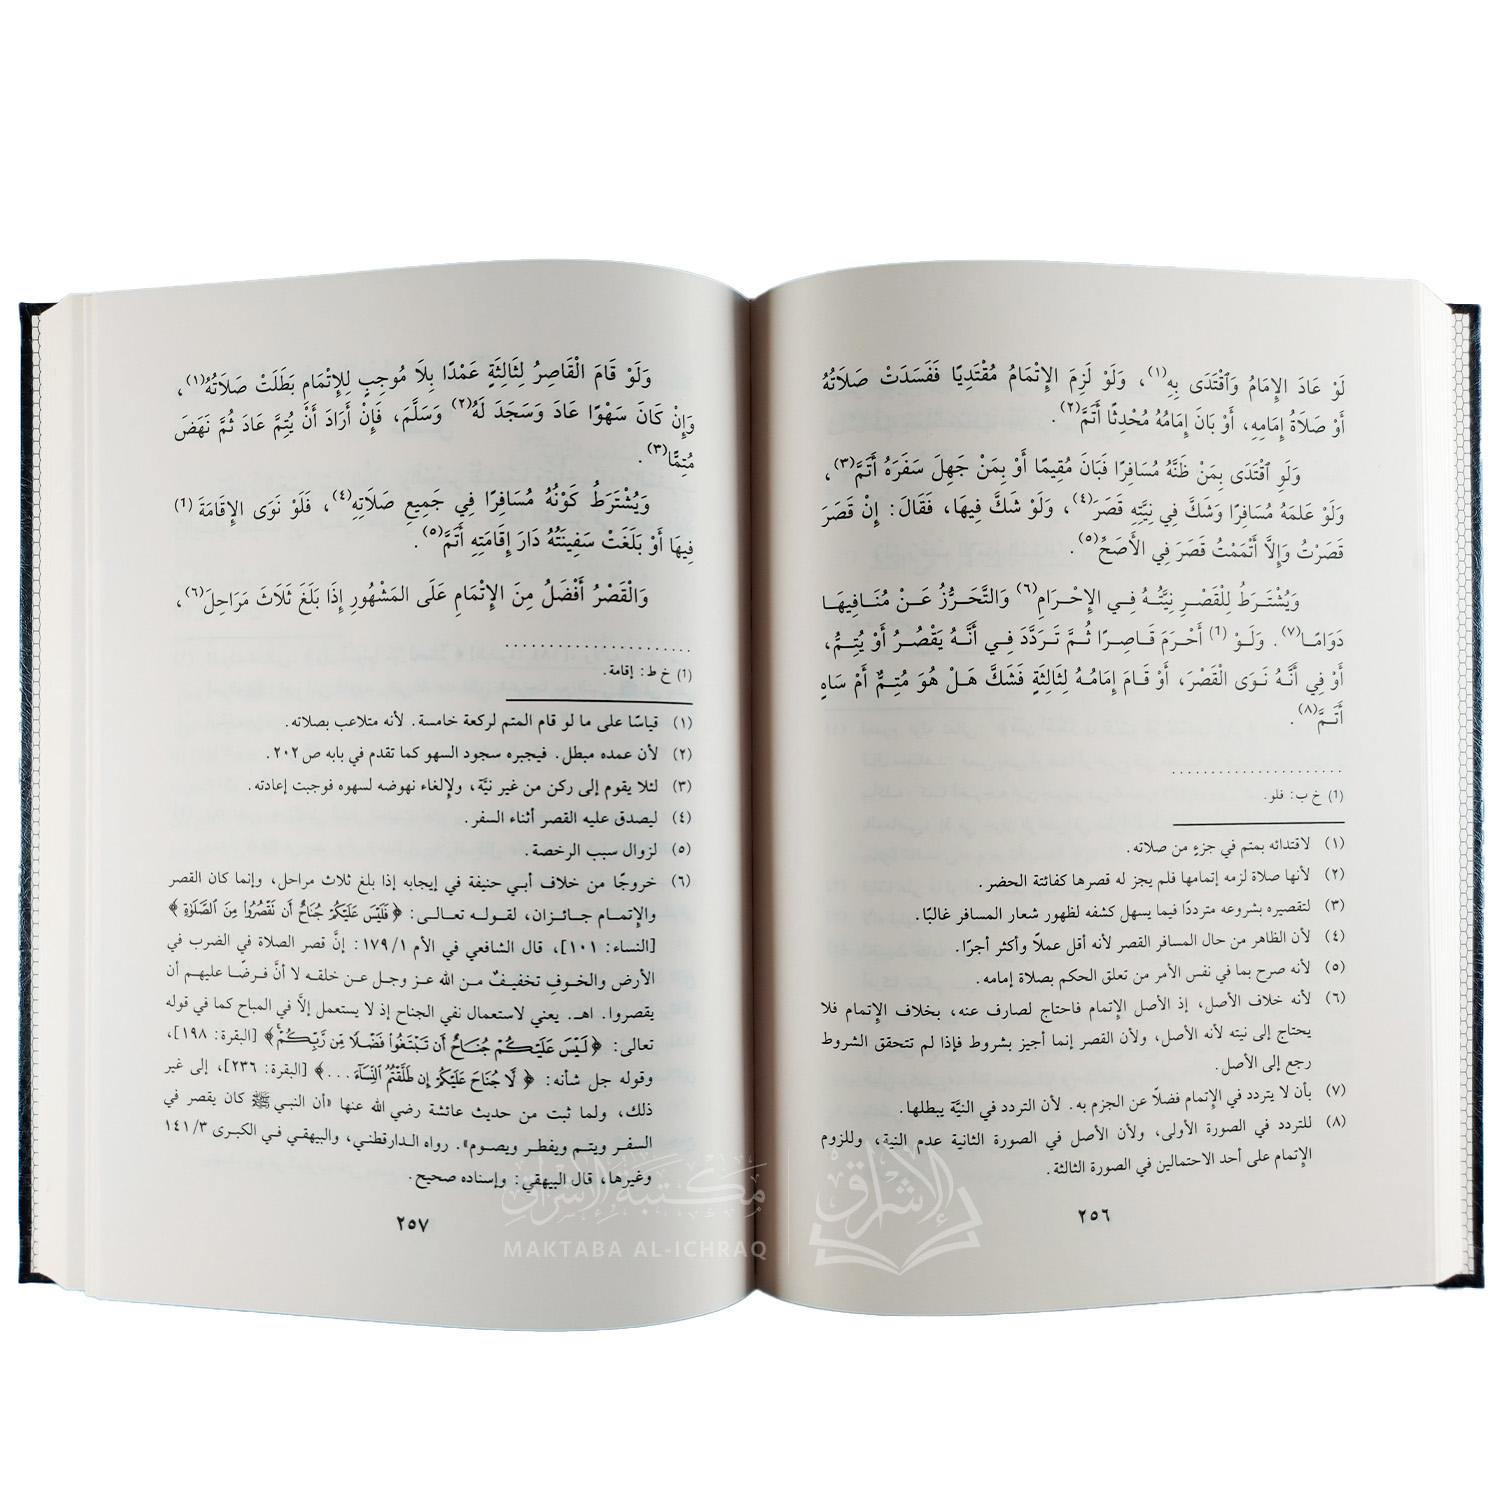 لَوْ عَادَ الإِمَامُ وَٱقْتَدَى بِهِ(١)، وَلَوْ لَزِمَ الإِتْمَامُ مُقْتَدِيًا فَفَسَدَتْ صَلَاتُهُ
أَوْ صَلَاةُ إِمَامِهِ، أَوْ بَانَ إِمَامُهُ مُحْدِثًا أَتَمَّ(٢).
وَلَو ٱقْتَدَى بِمَنْ ظَنَّهُ مُسَافِرًا فَبَانَ مُقِيمًا أَوْ بِمَنْ جَهِلَ سَفَرَهُ أَتَمَّ(٣)،
وَلَوْ عَلِمَهُ مُسَافِرًا وَشَكَّ فِي نِيَّتِهِ قَصَرَ(٤)، وَلَوْ شَكَّ فِيهَا، فَقَالَ: إِنْ قَصَرَ
قَصَرْتُ وَإِلَّا أَتْمَمْتُ قَصَرَ فِي الأَصَحِّ(٥).
وَيُشْتَرَطُ لِلْقَصْرِ نِيَّتُهُ فِي الإِحْرَامِ(٦) وَالتَّحَرُّزُ عَنْ مُنَافِيهَا
دَوَامًا(٧). وَلَوْ(١) أَحْرَمَ قَاصِرًا ثُمَّ تَرَدَّدَ فِي أَنَّهُ يَقْصُرُ أَوْ يُتِمُّ،
أَوْ فِي أَنَّهُ نَوَى القَصْرَ، أَوْ قَامَ إِمَامُهُ لِثَالِثَةٍ فَشَكَّ هَلْ هُوَ مُتِمٌّ أَمْ سَاهٍ
أَتَمَّ(٨).
(١) خ ب: فلو.
(١) لاقتدائه بمتم في جزءٍ من صلاته.
(٢) لأنها صلاة لزمه إتمامها فلم يجز له قصرها كفائتة الحضر.
(٣) لتقصيره بشروعه مترددًا فيما يسهل كشفه لظهور شعار المسافر غالبًا.
(٤) لأن الظاهر من حال المسافر القصر لأنه أقل عملاً وأكثر أجرًا.
(٥) لأنه صرح بما في نفس الأمر من تعلق الحكم بصلاة إمامه.
(٦) لأنه خلاف الأصل، إذ الأصل الإتمام فاحتاج لصارف عنه، بخلاف الإتمام فلا
يحتاج إلى نيته لأنه الأصل، ولأن القصر إنما أجيز بشروط فإذا لم تتحقق الشروط
رجع إلى الأصل.
(٧) بأن لا يتردد في الإتمام فضلاً عن الجزم به. لأن التردد في النيَّة يبطلها.
(٨) للتردد في الصورة الأولى، ولأن الأصل في الصورة الثانية عدم النية، وللزوم
الإتمام على أحد الاحتمالين في الصورة الثالثة.
٢٥٦
وَلَوْ قَامَ الْقَاصِرُ لِثَالِثَةٍ عَمْدًا بِلاَ مُوجِبٍ لِلإِتْمَامِ بَطَلَتْ صَلَاتُهُ(١)،
وَإِنْ كَانَ سَهْوًا عَادَ وَسَجَدَ لَهُ(٢) وَسَلَّمَ، فَإِنْ أَرَادَ أَنْ يُتِمَّ عَادَ ثُمَّ نَهَضَ
مُتِمًّا(٣).
وَيُشْتَرَطُ كَوْنُهُ مُسَافِرًا فِي جَمِيعِ صَلَاتِهِ(٤)، فَلَوْ نَوَى الإِقَامَةَ(١)
فِيهَا أَوْ بَلَغَتْ سَفِينَتُهُ دَارَ إِقَامَتِهِ أَتَمَّ(٥).
وَالْقَصْرُ أَفْضَلُ مِنَ الإِتْمَامِ عَلَى المَشْهُورِ إِذَا بَلَغَ ثَلَاثَ مَرَاحِلَ(٦)،
(١) خ ط: إقامة.
(١) قياسًا على ما لو قام المتم لركعة خامسة. لأنه متلاعب بصلاته.
(٢) لأن عمده مبطل. فيجبره سجود السهو كما تقدم في بابه ص ٢٠٢.
(٣) لئلا يقوم إلى ركن من غير نيَّة، ولإلغاء نهوضه لسهوه فوجبت إعادته.
(٤) ليصدق عليه القصر أثناء السفر.
(٥) لزوال سبب الرخصة.
(٦) خروجًا من خلاف أبي حنيفة في إيجابه إذا بلغ ثلاث مراحل، وإنما كان القصر
والإتمام جائزان، لقوله تعالى: ﴿فَلَيْسَ عَلَيْكُمْ جُنَاحٌ أَن تَقْصُرُوا۟ مِنَ ٱلصَّلَوٰةِ﴾
[النساء: ١٠١]، قال الشافعي في الأم ١/١٧٩: إنَّ قصر الصلاة في الضرب في
الأرض والخوفِ تخفيفٌ من الله عز وجل عن خلقه لا أنَّ فرضًا عليهم أن
يقصروا. اهـ. يعني لاستعمال نفي الجناح إذ لا يستعمل إلاَّ في المباح كما في قوله
تعالى: ﴿لَيْسَ عَلَيْكُمْ جُنَاحٌ أَن تَبْتَغُوا۟ فَضْلًا مِّن رَّبِّكُمْ﴾ [البقرة: ١٩٨]،
وقوله جل شأنه: ﴿لَا جُنَاحَ عَلَيْكُمْ إِن طَلَّقْتُمُ ٱلنِّسَآءَ...﴾ [البقرة: ٢٣٦]، إلى غير
ذلك، ولما ثبت من حديث عائشة رضي الله عنها «أن النبي ﷺ كان يقصر في
السفر ويتم ويفطر ويصوم». رواه الدارقطني، والبيهقي في الكبرى ٣/١٤١
وغيرها، قال البيهقي: وإسناده صحيح.
٢٥٧
مكتبة الإشراق
MAKTABA AL-ICHRAQ
الإشراق